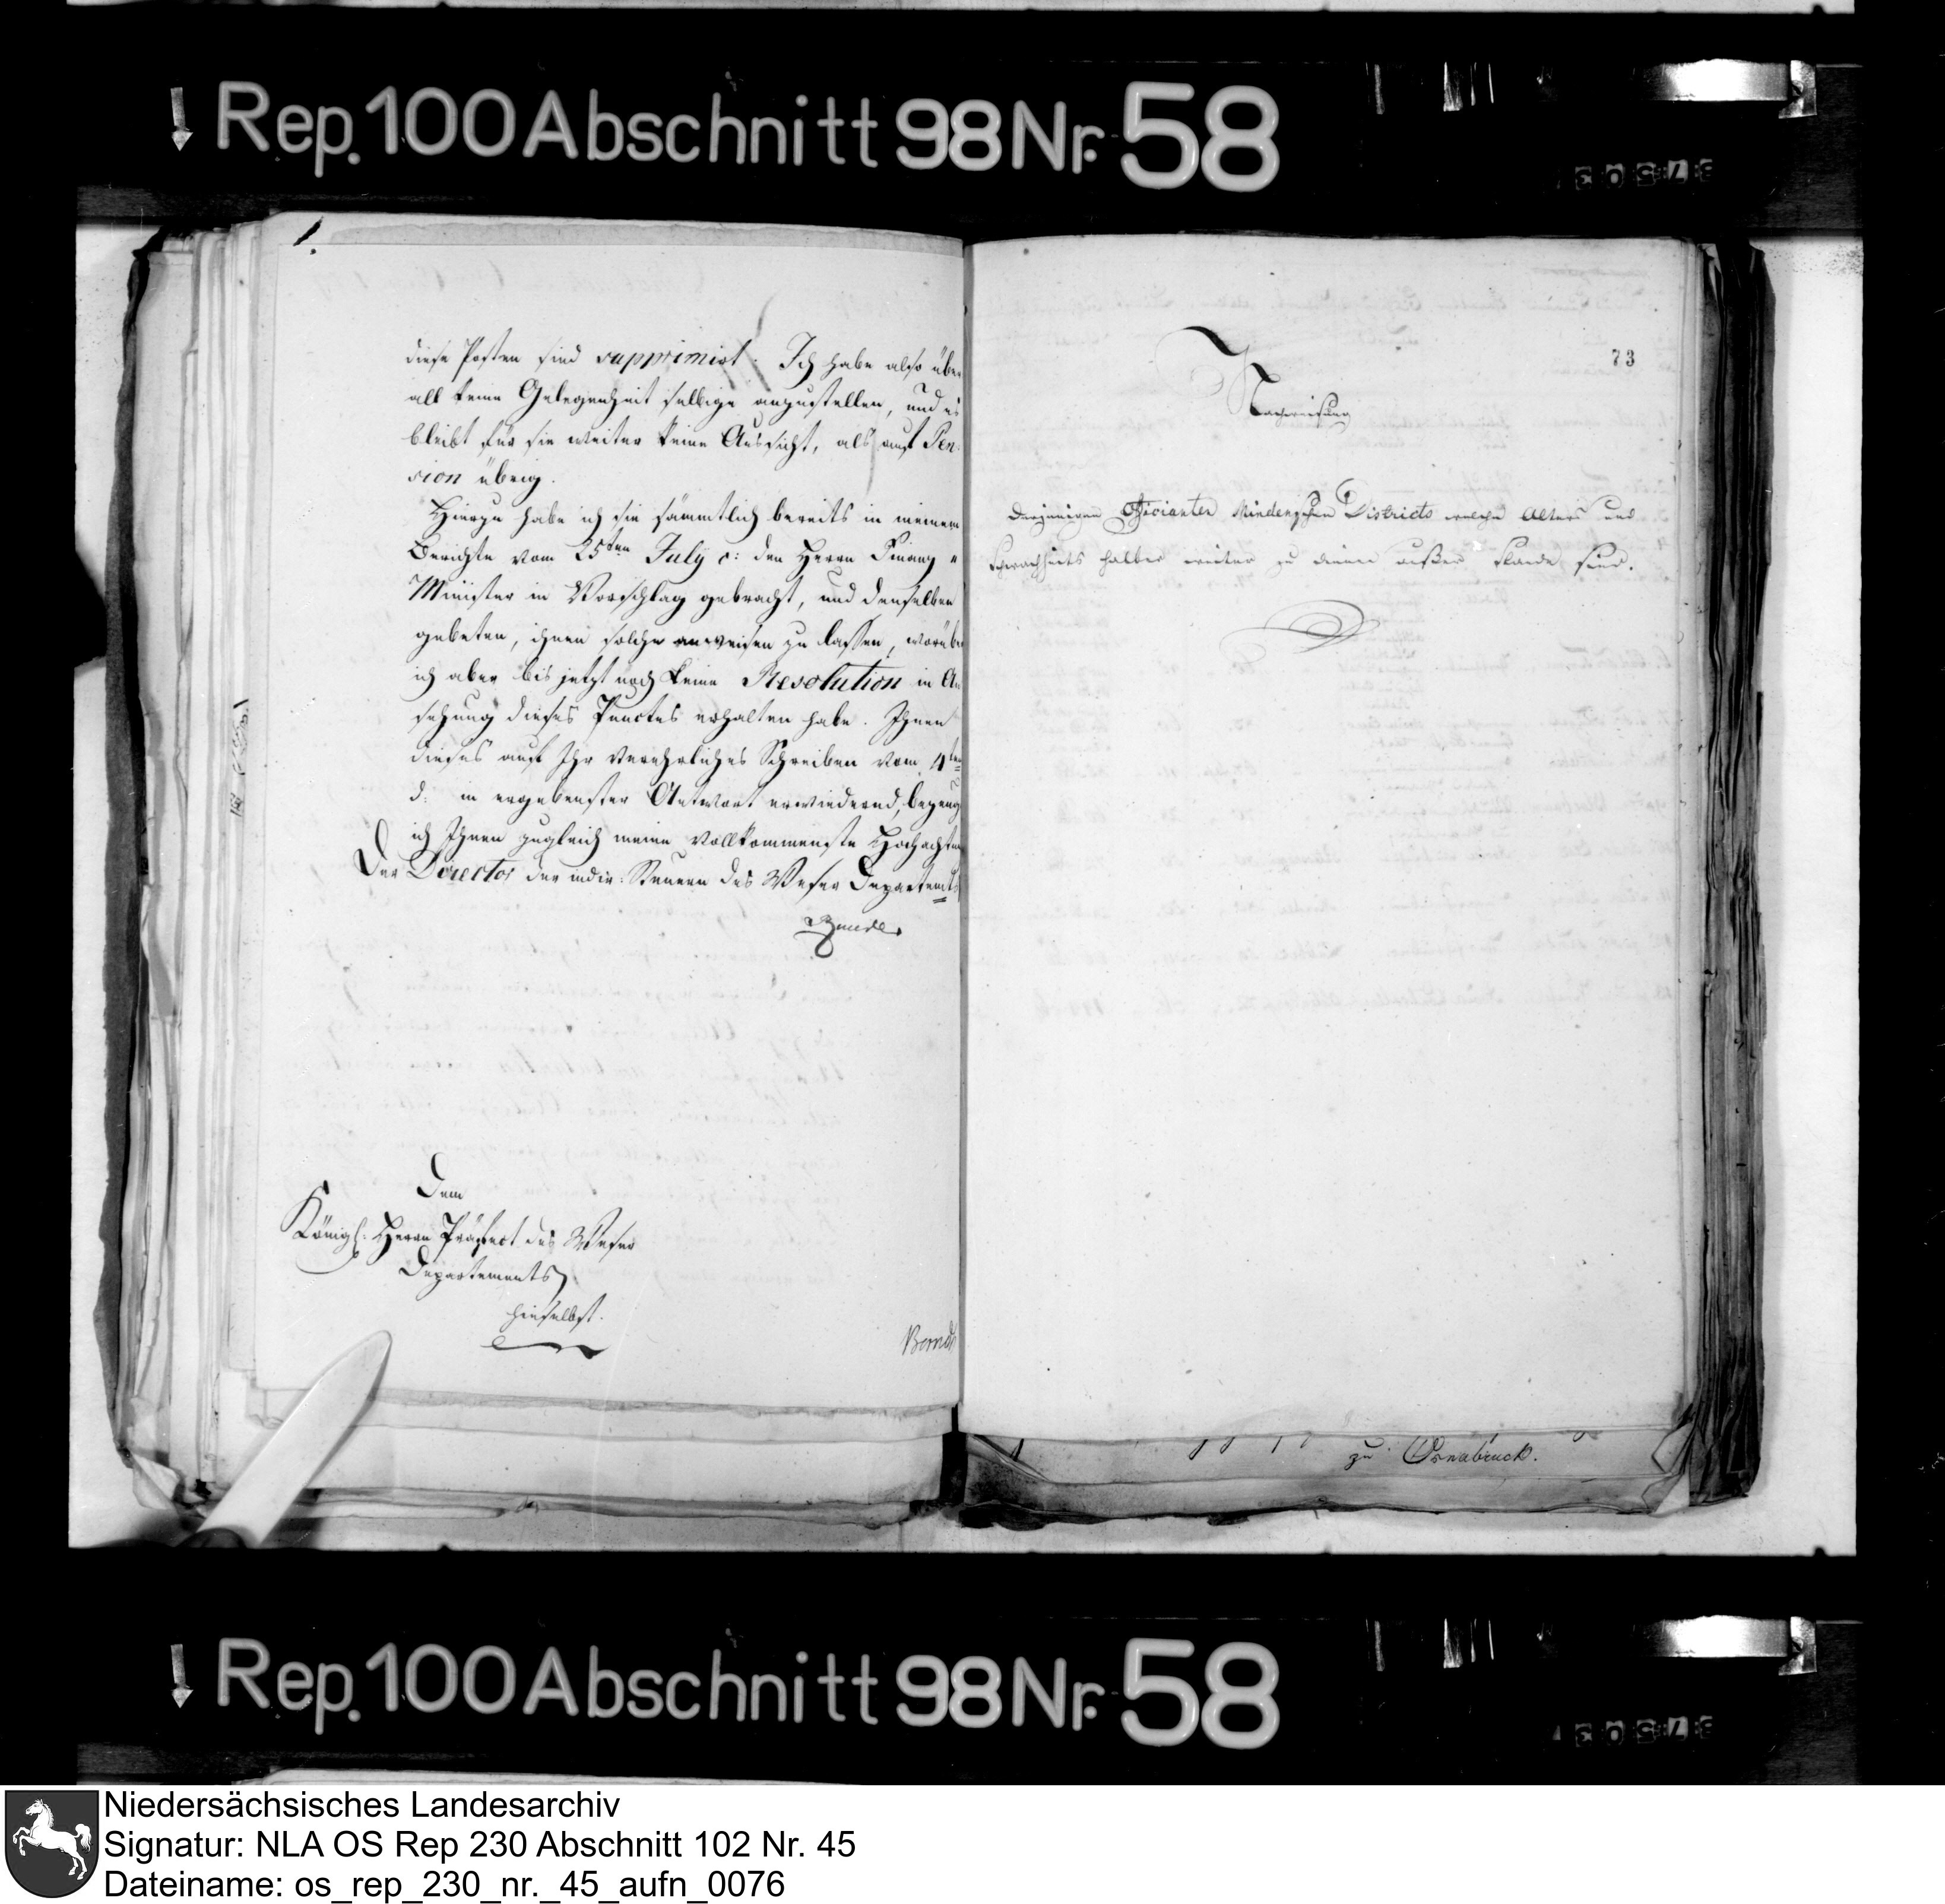 Rep. 100 Abschnitt 98 Nr. 58
diese Posten sind supprimirt. Ich habe also über
all keine Gelegenheit selbige anzustellen, und es
bleibt für sie weiter keine Aussicht, als auf Pen-
sion übrig.
Hierzu habe ich sie sämmtlich bereits in meinem
Berichte vom 25ten July c: den Herrn Finanz
Minister in Vorschlag gebracht, und denselben
gebeten, ihnen solche anweisen zu lassen, worüber
ich aber bis jetzt noch keine Resolution in An
sehung dieses Punctes erhalten habe. Ihnen
dieses auf Ihr verehrliches Schreiben vom 4ten
d: in ergebenster Antwort erwiedernd, bezeug
ich Ihnen zugleich meine vollkommenste Hochachtun
Der Director der indir: Steuern des Weser Departemts
Dem
Königl: Herrn Präfect des Weser
Departements
hieselbst.
73
Nachweisung
derjenigen Officianten Mindenschen Districts welche Alters und
Schwachheits halber weiter zu dienen außer Stande sind.
zu Osnabruck.
Rep. 100 Abschnitt 98 Nr. 58
Niedersächsisches Landesarchiv
Signatur: NLA OS Rep 230 Abschnitt 102 Nr. 45
Dateiname: os_rep_230_nr._45_aufn_0076